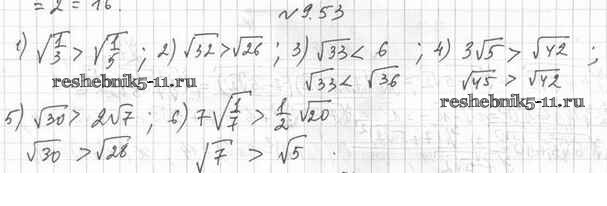 = 2 = 16.
№9.53
1) √(1/3) > √(1/5) ; 2) √32 > √26 ; 3) √33 < 6 ; 4) 3√5 > √42 ;
√33 < √36 √45 > √42
reshebnik5-11.ru
reshebnik5-11.ru
5) √30 > 2√7 ; 6) 7√(1/7) > 1/2 √20
√30 > √28 √7 > √5